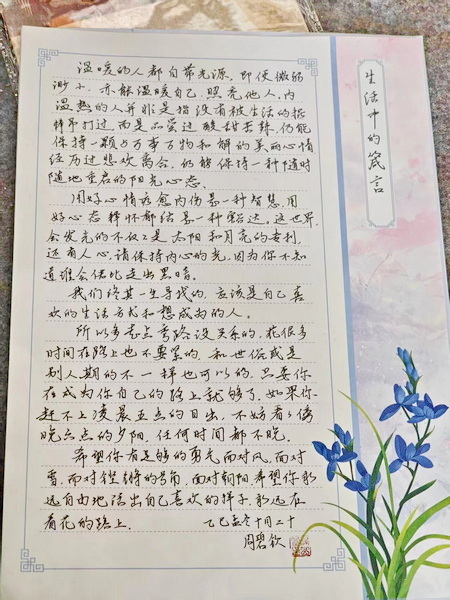 生活中的箴言
温暖的人都自带光源，即使微弱
渺小，亦能温暖自己，照亮他人，内
心温热的人并非是指没有被生活的挫
折吊打过，而是品尝过酸甜苦辣，仍能
保持一颗与万事万物和解的美丽心情
经历过悲欢离合，仍能保持一种随时
随地重启的阳光心态。
用好心情治愈内伤是一种智慧，用
好心态释怀都结是一种豁达，这世界
会发光的不仅仅是太阳和月亮的专利，
还有人心，请保持内心的光，因为你不知
道谁会借此走出黑暗。
我们终其一生寻找的，应该是自己喜
欢的生活方式和想成为的人。
所以多走点弯路没关系的，花很多
时间在路上也不要紧的，和世俗或是
别人期的不一样也可以的，只要你
在成为你自己的路上就够了，如果你
赶不上凌晨五点的日出，不妨看看傍
晚六点的夕阳，任何时间都不晚。
希望你有足够的勇气面对风，面对
雪，面对铿锵的号角，面对朝阳希望你永
远自由地活出自己喜欢的样子，永远在
看花的路上。
乙巳孟冬十月二十
周碧钦